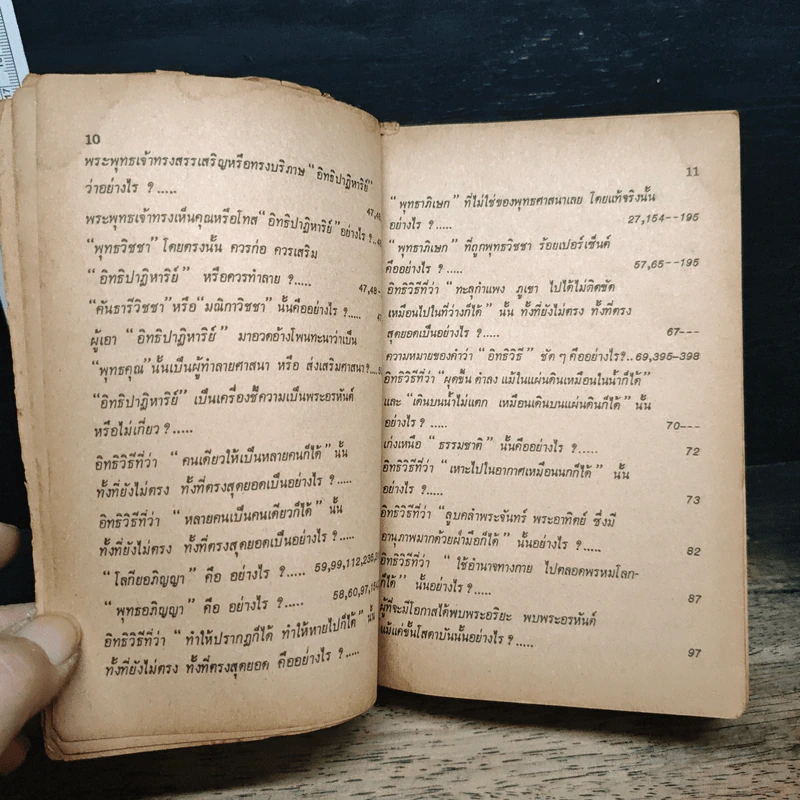 10
พระพุทธเจ้าทรงสรรเสริญหรือทรงบริภาษ “อิทธิปาฏิหาริย์”
ว่าอย่างไร ?..... 47,48
พระพุทธเจ้าทรงเห็นคุณหรือโทส “อิทธิปาฏิหาริย์” อย่างไร ?..
“พุทธวิชชา” โดยตรงนั้น ควรก่อ ควรเสริม
“อิทธิปาฏิหาริย์” หรือควรทำลาย ?..... 47,48-
“คันธารีวิชชา” หรือ “มณิกาวิชชา” นั้นคืออย่างไร ?.....
ผู้เอา “อิทธิปาฏิหาริย์” มาอวดอ้างโพนทะนาว่าเป็น
“พุทธคุณ” นั้นเป็นผู้ทำลายศาสนา หรือ ส่งเสริมศาสนา?....
“อิทธิปาฏิหาริย์” เป็นเครื่องชี้ความเป็นพระอรหันต์
หรือไม่เกี่ยว ?.....
อิทธิวิธีที่ว่า “คนเดียวให้เป็นหลายคนก็ได้” นั้น
ทั้งที่ยังไม่ตรง ทั้งที่ตรงสุดยอดเป็นอย่างไร ?.....
อิทธิวิธีที่ว่า “หลายคนเป็นคนเดียวก็ได้” นั้น
ทั้งที่ยังไม่ตรง ทั้งที่ตรงสุดยอดเป็นอย่างไร ?.....
“โลกียอภิญญา” คือ อย่างไร ?..... 59,99,112,236,
“พุทธอภิญญา” คือ อย่างไร ?..... 58,60,97,
อิทธิวิธีที่ว่า “ทำให้ปรากฏก็ได้ ทำให้หายไปก็ได้” นั้น
ทั้งที่ยังไม่ตรง ทั้งที่ตรงสุดยอด คืออย่างไร ?.....
11
“พุทธาภิเษก” ที่ไม่ใช่ของพุทธศาสนาเลย โดยแท้จริงนั้น
อย่างไร ?..... 27,154--195
“พุทธาภิเษก” ที่ถูกพุทธวิชชา ร้อยเปอร์เซ็นต์
คืออย่างไร ?..... 57,65--195
อิทธิวิธีที่ว่า “ทะลุกำแพง ภูเขา ไปได้ไม่ติดขัด
เหมือนไปในที่ว่างก็ได้” นั้น ทั้งที่ยังไม่ตรง ทั้งที่ตรง
สุดยอดเป็นอย่างไร ?..... 67---
ความหมายของคำว่า “อิทธิวิธี” ชัด ๆ คืออย่างไร?..69,395-398
อิทธิวิธีที่ว่า “ผุดขึ้น ดำลง แม้ในแผ่นดินเหมือนในน้ำก็ได้”
และ “เดินบนน้ำไม่แตก เหมือนเดินบนแผ่นดินก็ได้” นั้น
อย่างไร ?..... 70---
เก่งเหนือ “ธรรมชาติ” นั้นคืออย่างไร ?..... 72
อิทธิวิธีที่ว่า “เหาะไปในอากาศเหมือนนกก็ได้” นั้น
อย่างไร ?..... 73
อิทธิวิธีที่ว่า “ลูบคลำพระจันทร์ พระอาทิตย์ ซึ่งมี
อานุภาพมากด้วยฝ่ามือก็ได้” นั้นอย่างไร ?..... 82
อิทธิวิธีที่ว่า “ใช้อำนาจทางกาย ไปตลอดพรหมโลก-
ก็ได้” นั้นอย่างไร ?..... 87
ผู้ที่จะมีโอกาสได้พบพระอริยะ พบพระอรหันต์
แม้แค่ขั้นโสดาบันนั้นอย่างไร ?..... 97